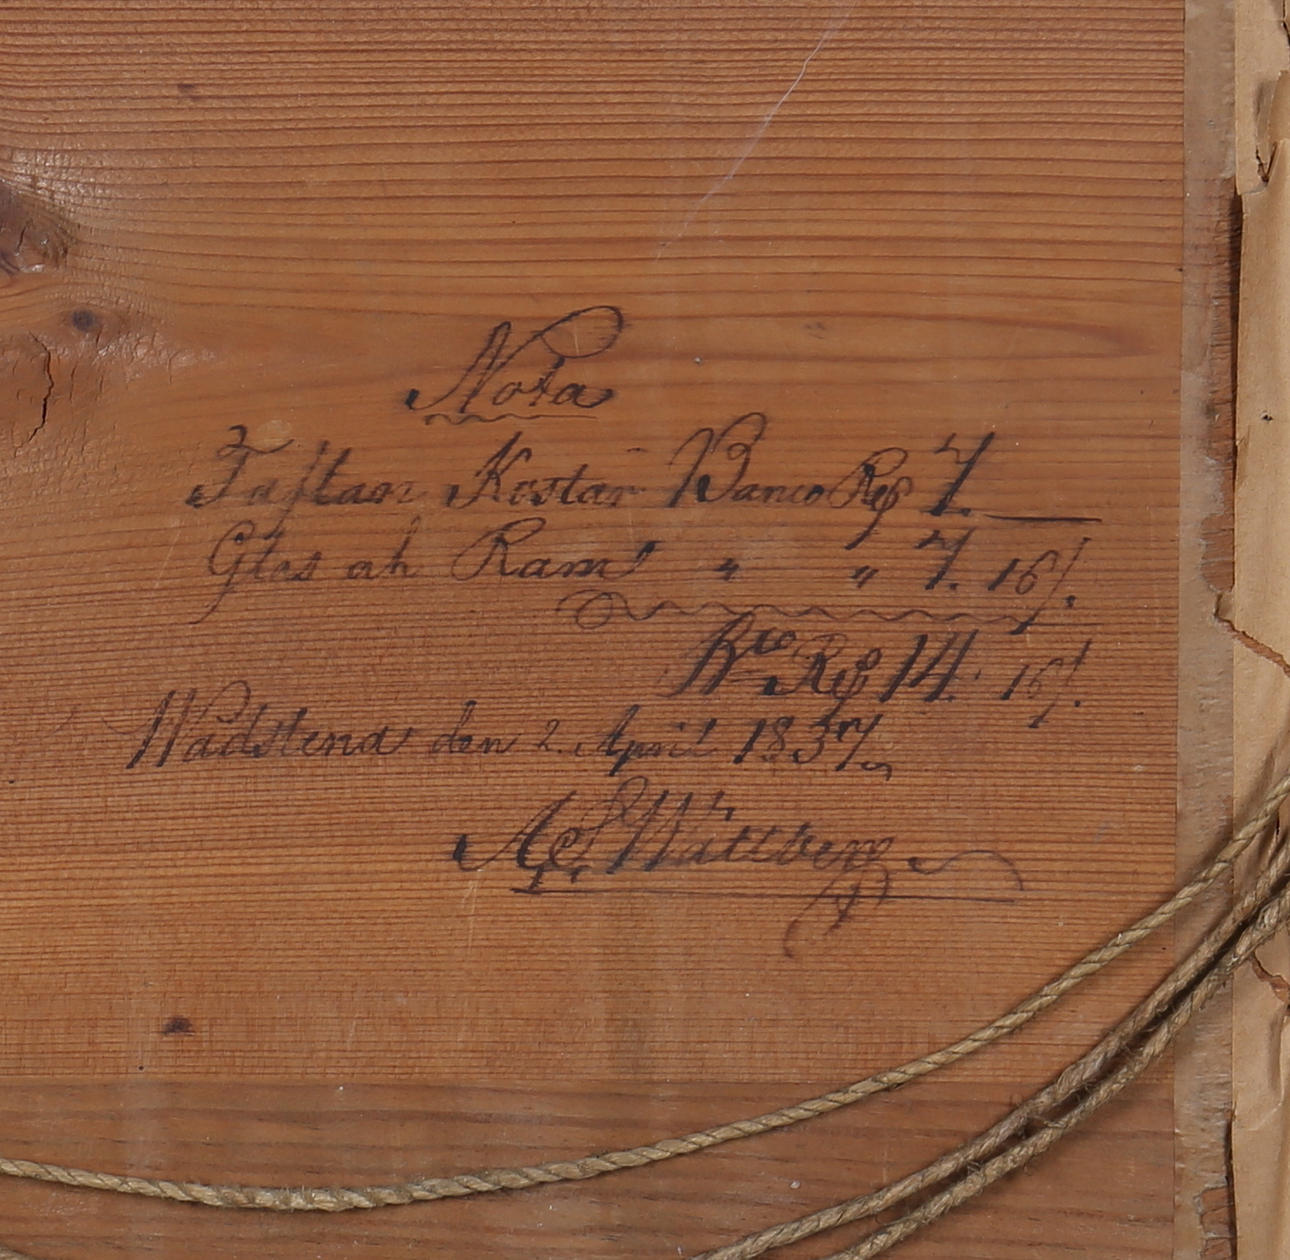 Nota
Taflan Kostar Banco Rdr 7. —
Glas ah Ram " " 7. 16/.
Bco Rdr 14. 16/.
Wadstena den 2. April 1837